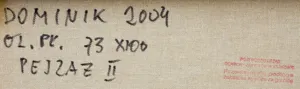 DOMINIK 2004
OL. PŁ. 73 X100
PEJZAŻ II